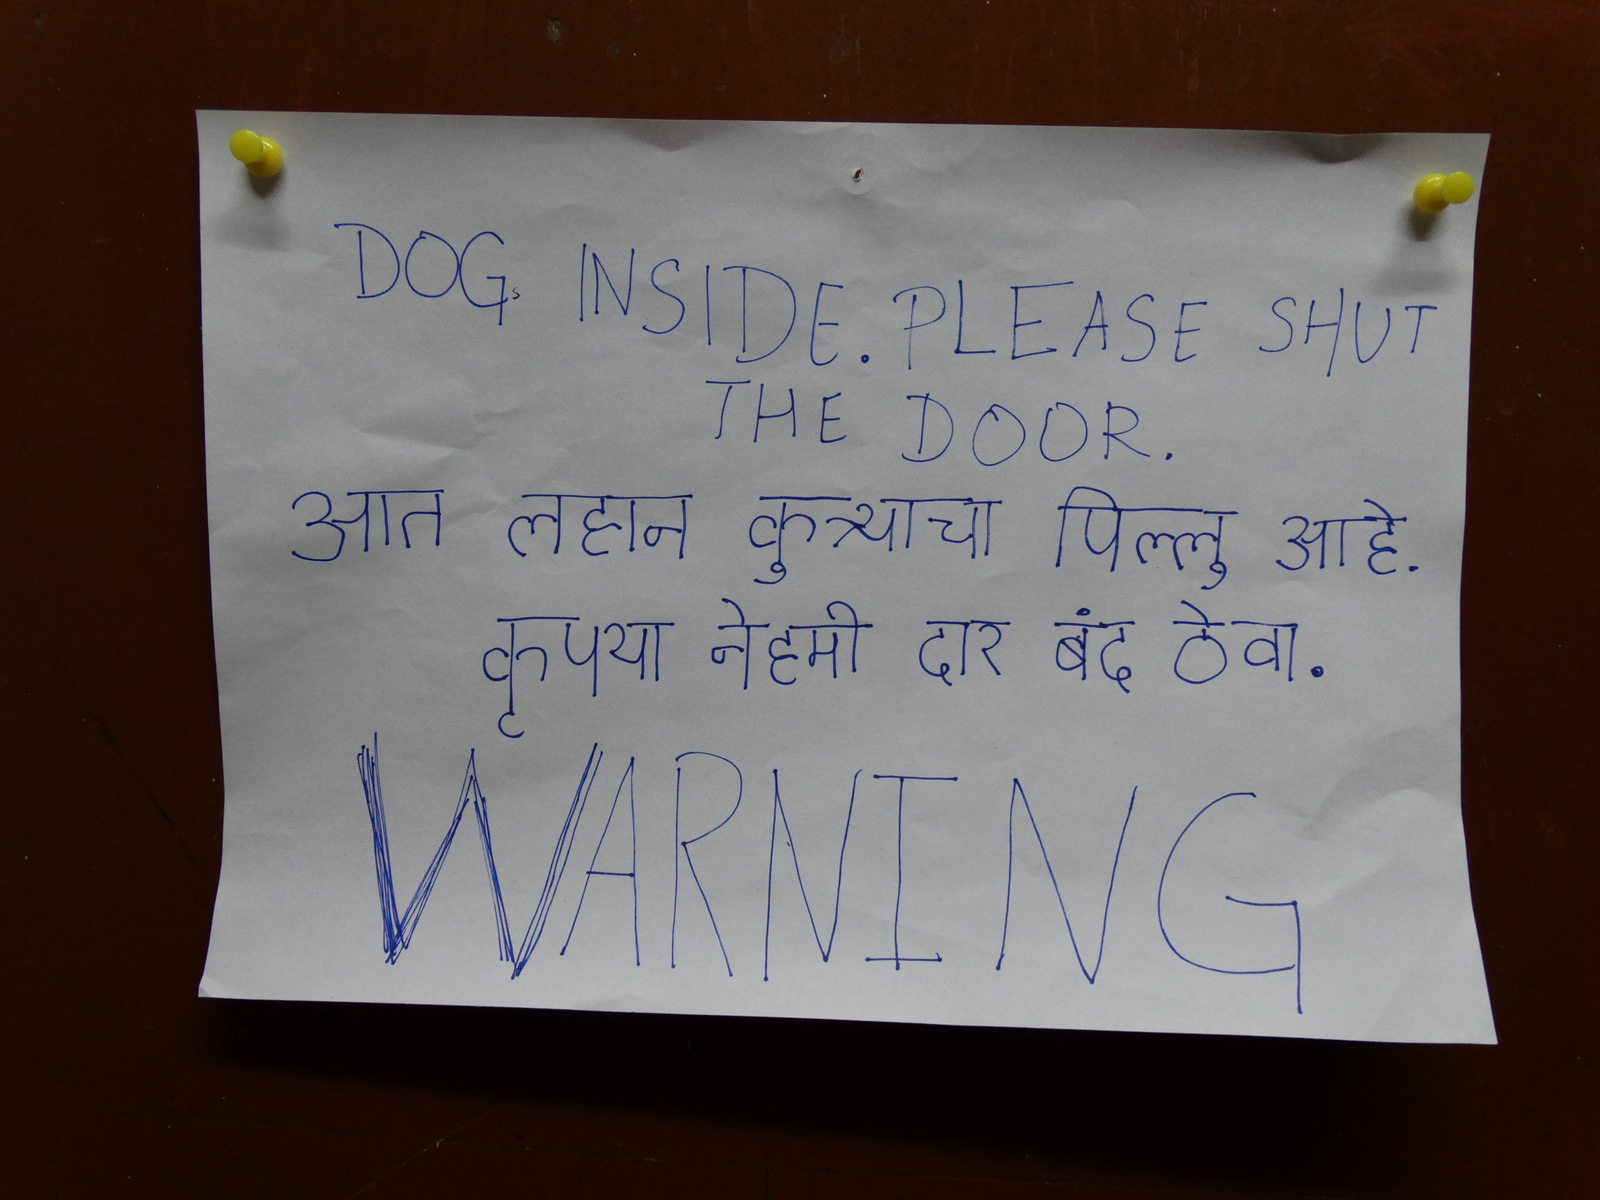 DOGs INSIDE. PLEASE SHUT
THE DOOR.
आत लहान कुत्र्याचा पिल्लु आहे.
कृपया नेहमी दार बंद ठेवा.
WARNING